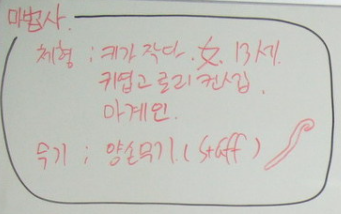 마법사.
체형 : 키가 작다. 女. 13세.
귀엽고 로리 컨셉.
마계인.
무기 : 양손무기 (staff)